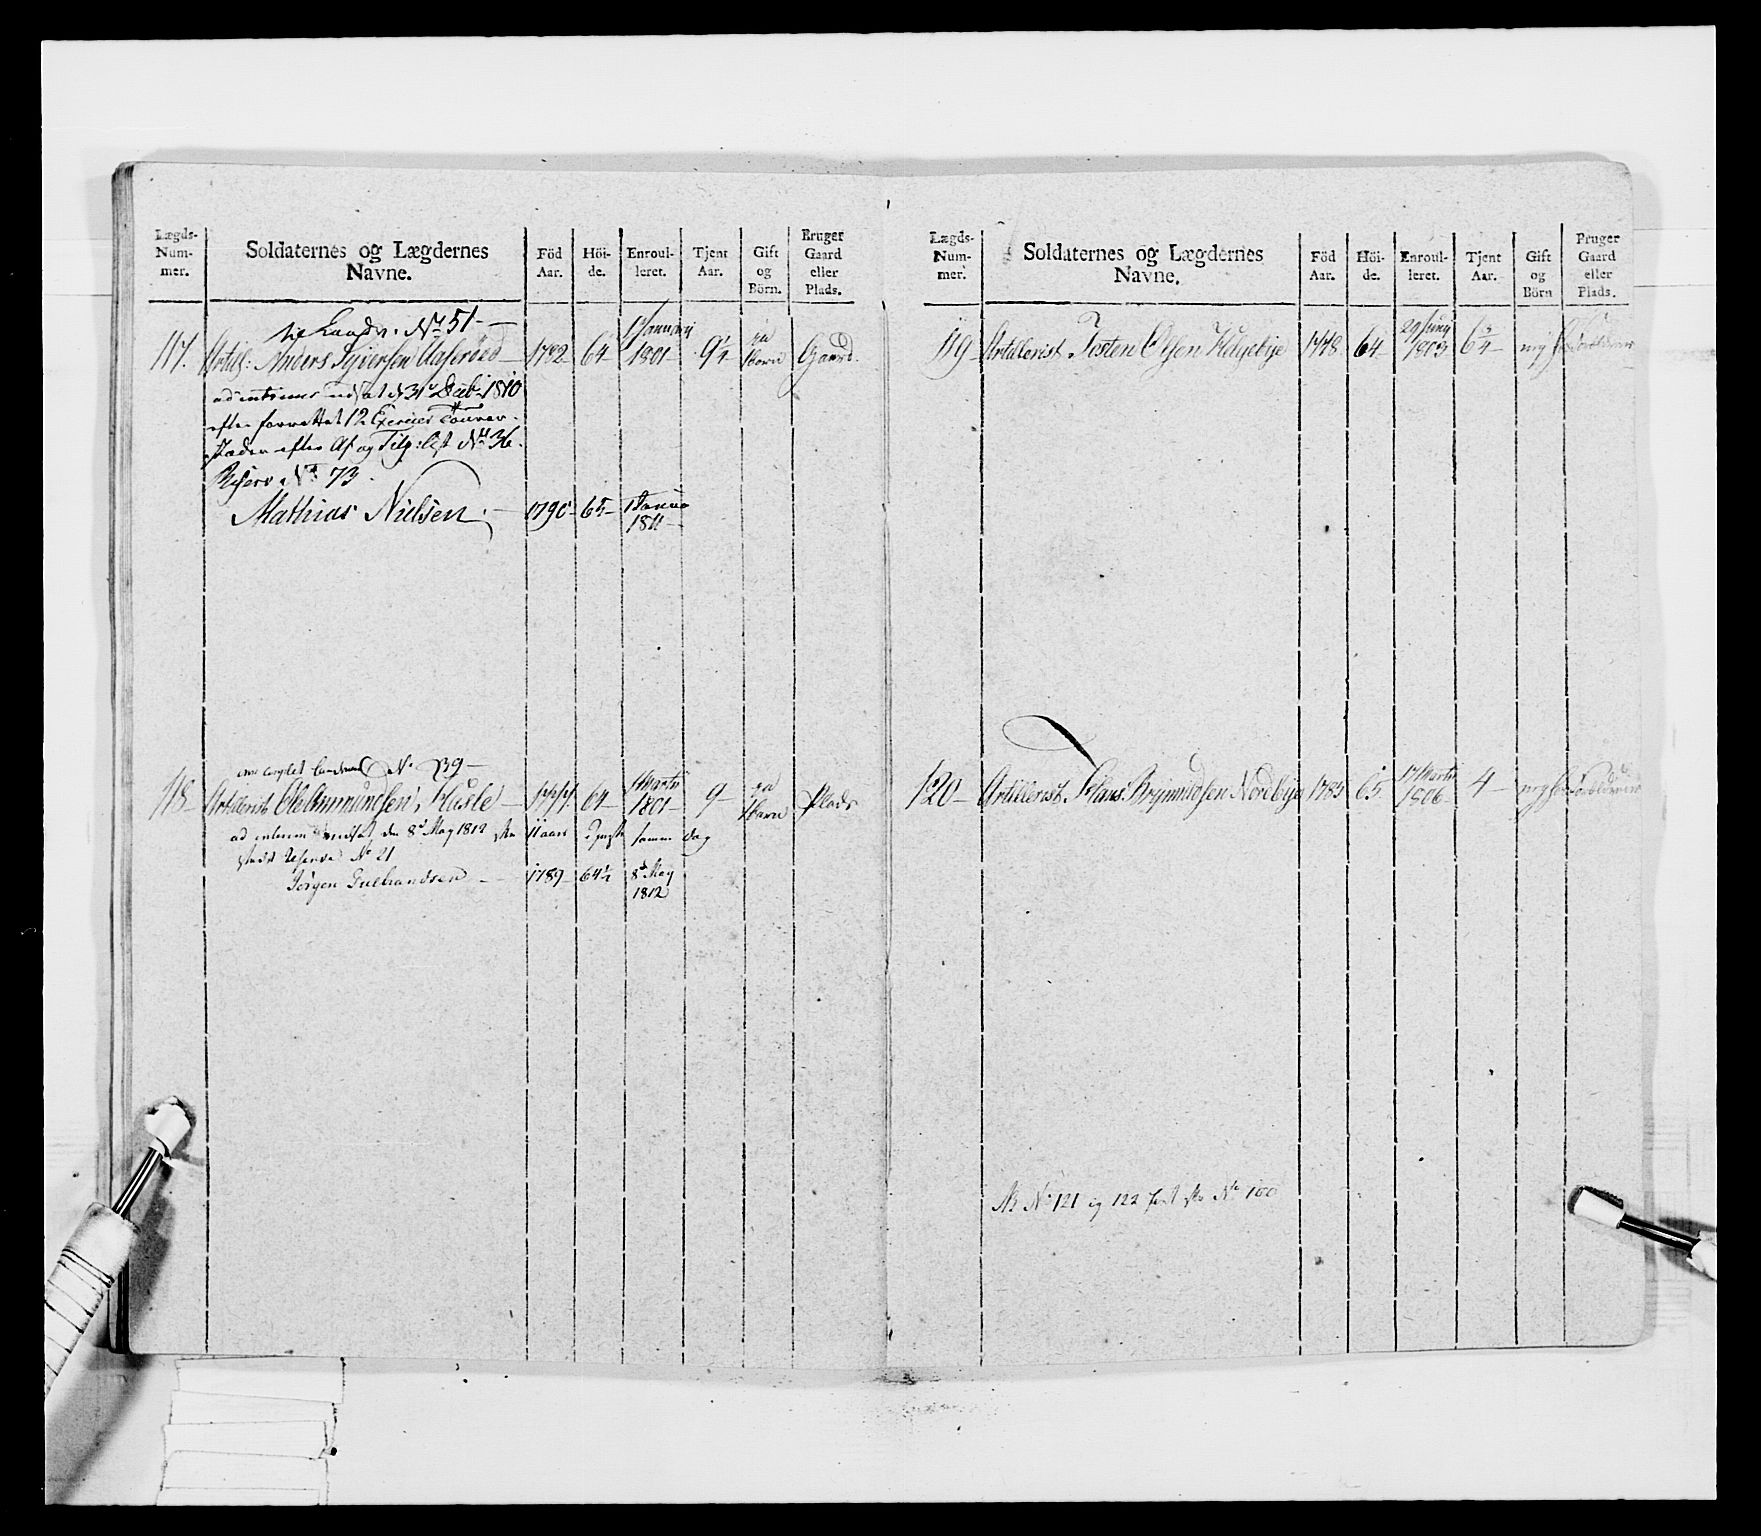 Lægds-Num-mer. Soldaternes og Lægdernes Navne. Föd Aar. Höi-de. Enroul-leret. Tjent Aar. Gift og Börn. Bruger Gaard eller Plads.
til Landv: No 51 —
117. Artil: Anders Syversen Aaseröed 1782 64 1 Januarij 1801 9 3/4 ja Børn Gaard
ad interim udsat d 31 Decbr 1810
efter forrettet 12 Exerceer Tourer.
Steden efter Af og Tilg: list No 36.
Reserv No 73.
Mathias Nielsen. — 1790 65 1 Januar 1811
No 139 —
118 Artillerist Ole Amundsen Hasle 1777 64 1 Martii 1801 9 ja 1 Barn Plads
ad interim udsat den 8de May 1812 11 aars Tjeneste samme dag
Reserve No 21
Jörgen Gulbrandsen — 1789 64 1/2 8de May 1812
Lægds-Num-mer. Soldaternes og Lægdernes Navne. Föd Aar. Höi-de. Enroul-leret. Tjent Aar. Gift og Börn Bruger Gaard eller Plads.
119 Artillerist Josten Olsen Helgebye 1778 64 29 Juny 1803 6 3/4 nej
120 Artillerist Hans Brynnildsen Nordbye 1785 65 17 Martii 1806 4 nej
NB No 121 og 122 No 100